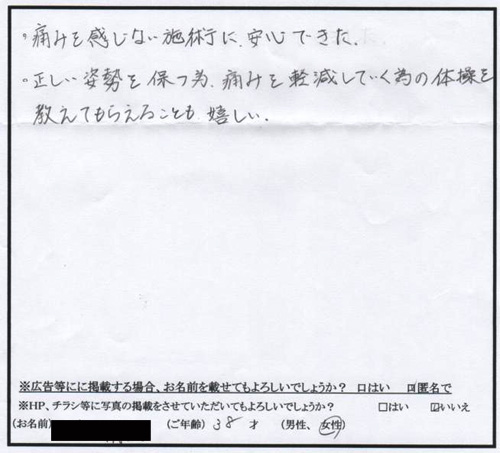 ・痛みを感じない施術に、安心できた。
・正しい姿勢を保つ為、痛みを軽減していく為の体操を
教えてもらえることも嬉しい。
※広告等にに掲載する場合、お名前を載せてもよろしいでしょうか？ □はい ☑匿名で
※HP、チラシ等に写真の掲載をさせていただいてもよろしいでしょうか？ □はい ☑いいえ
(お名前) (ご年齢) 38 才 (男性、女性)